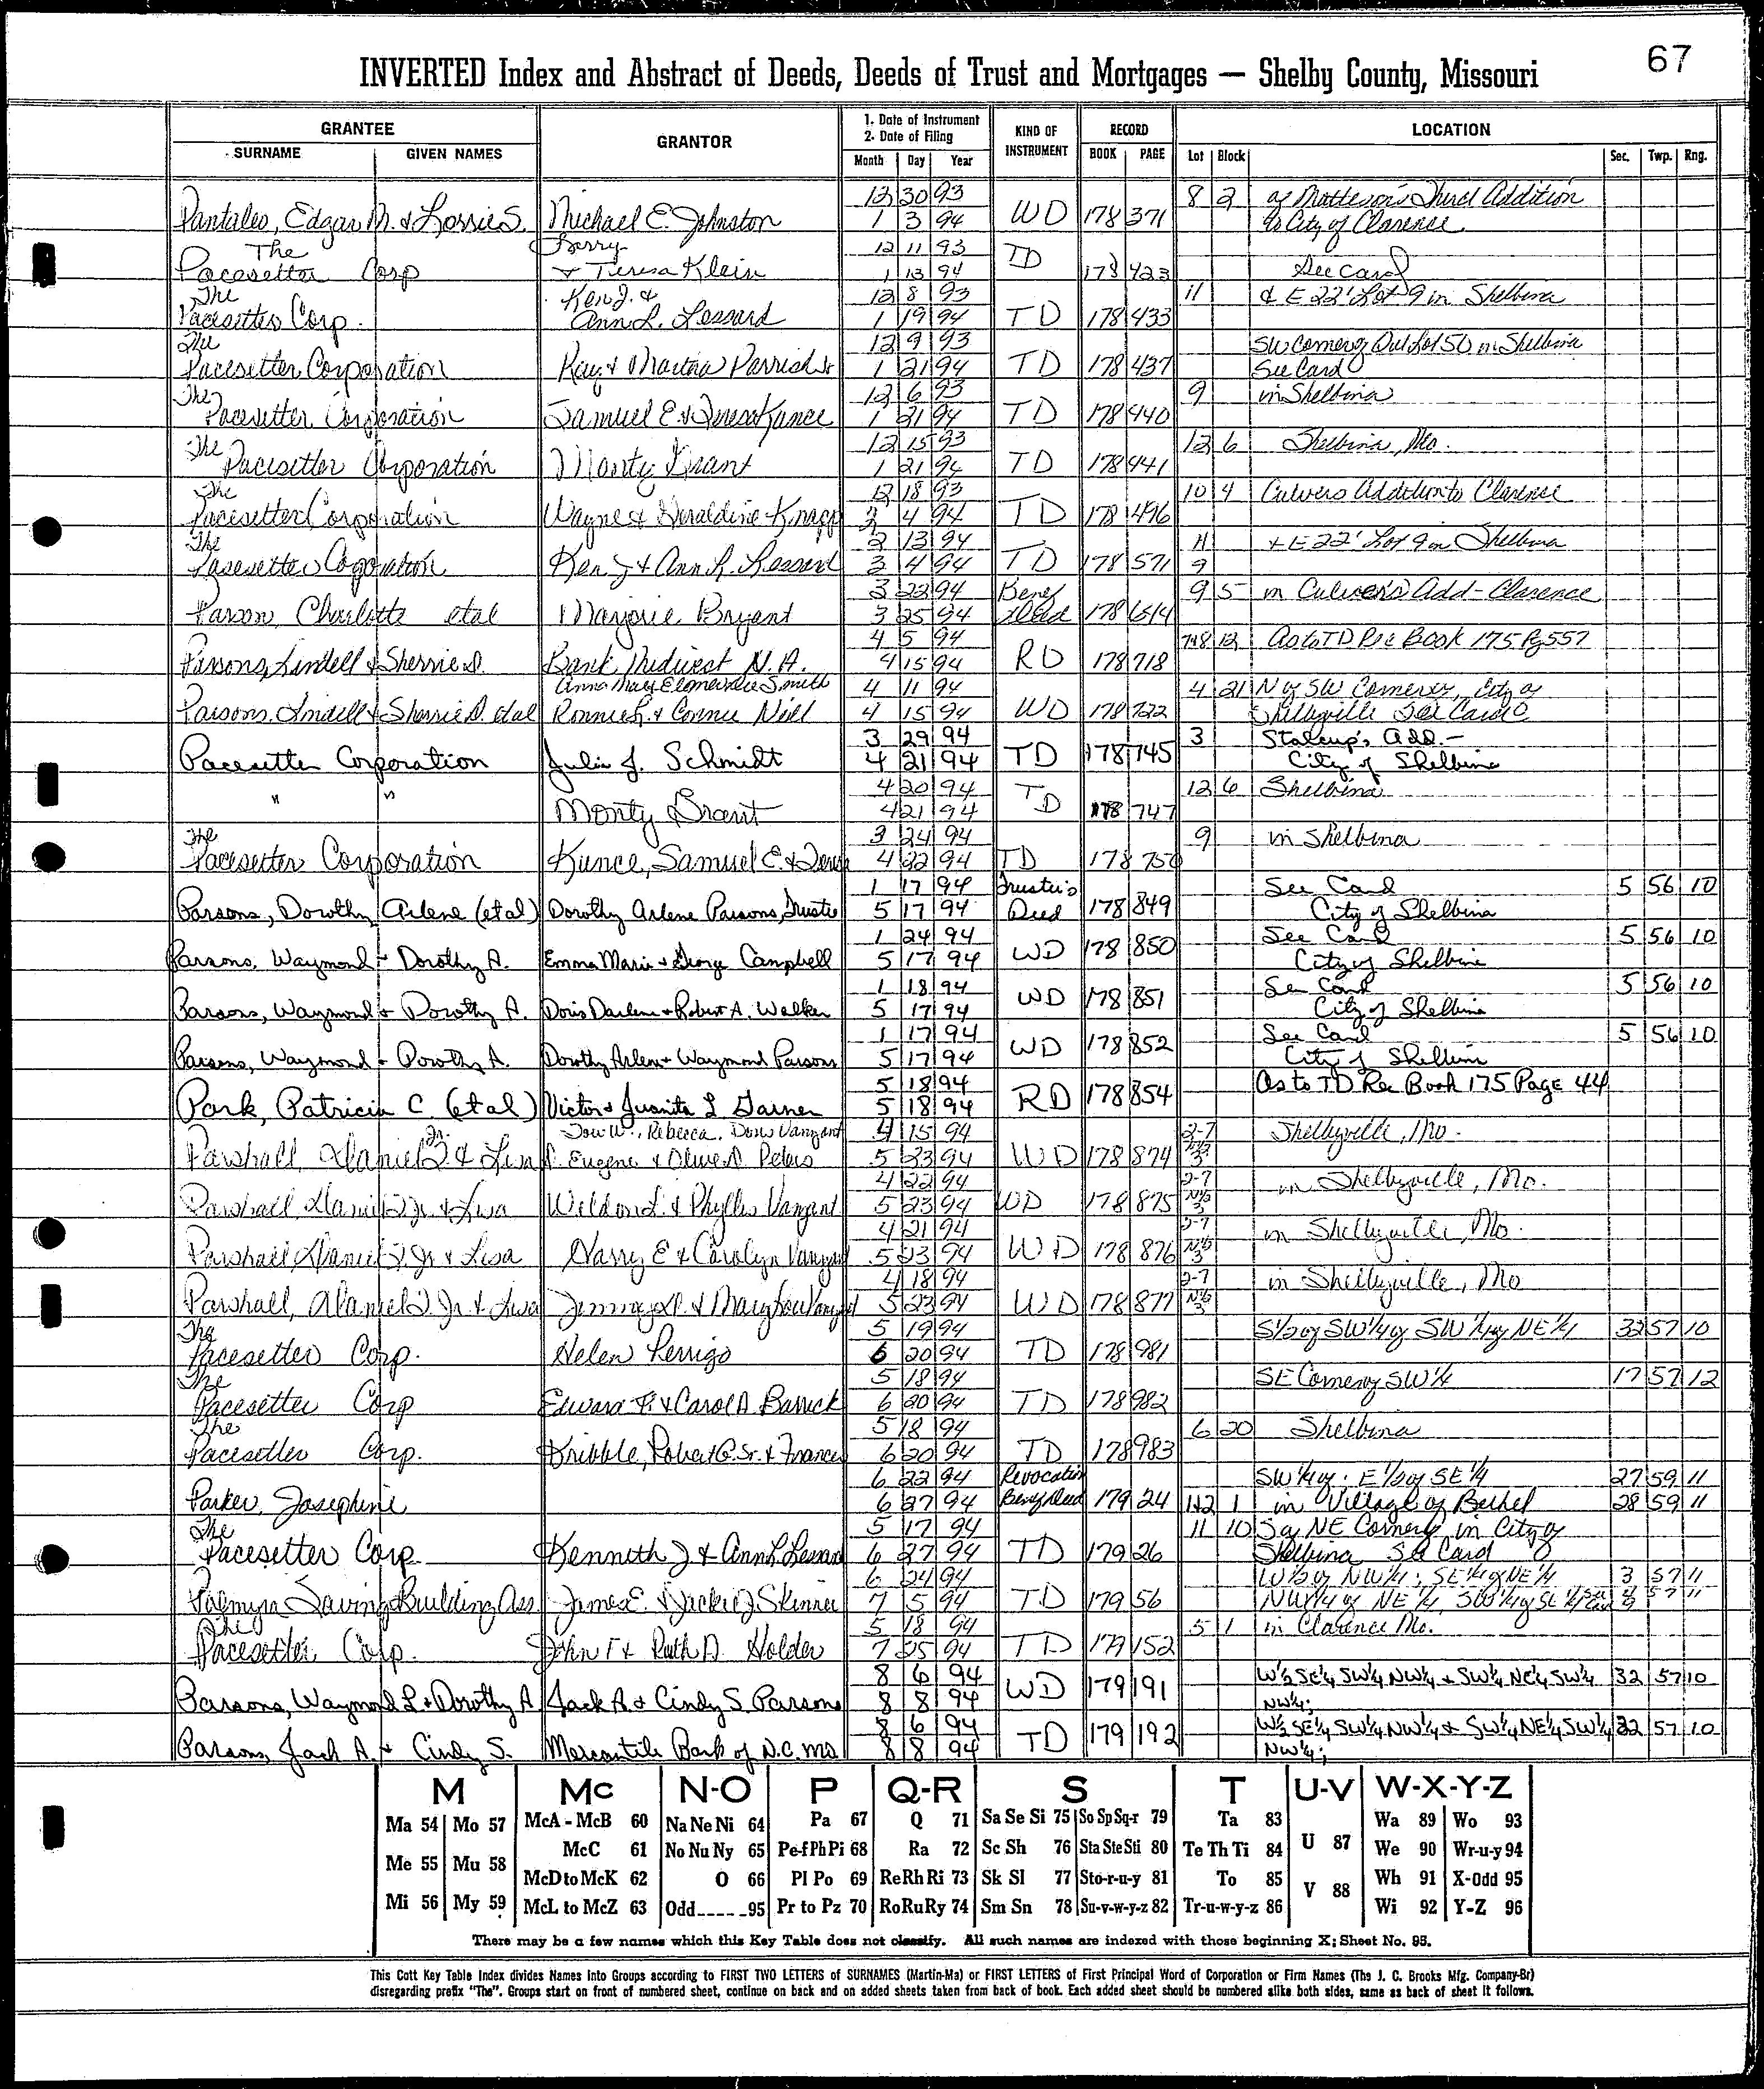 67
INVERTED Index and Abstract of Deeds, Deeds of Trust and Mortgages — Shelby County, Missouri
GRANTEE GRANTOR 1. Date of Instrument 2. Date of Filing KIND OF INSTRUMENT RECORD LOCATION
SURNAME GIVEN NAMES Month Day Year BOOK PAGE Lot Block Sec. Twp. Rng.
12 30 93 8 2 of Third Addition
Edgar M. & S. Michael E. Johnston 1 3 94 WD 178 371 to City of Clarence
The 12 11 93
Pacesetter Corp & Teresa Klein 1 13 94 TD 178 423 See Card
The Ken J. & 12 8 93 11 & E 22' Lot 9 in Shelbina
Pacesetter Corp. Ann L. Lessard 1 19 94 TD 178 433
The 12 9 93 SW Corner of Out Lot 50 in Shelbina
Pacesetter Corporation Parrish Jr 1 21 94 TD 178 437 See Card
The 12 6 93 9 in Shelbina
Pacesetter Corporation Samuel E & Teresa Kunce 1 21 94 TD 178 440
The 12 15 93 12 6 Shelbina, Mo.
Pacesetter Corporation Monty Grant 1 21 94 TD 178 441
The 12 18 93 10 4 Culvers Addition to Clarence
Pacesetter Corporation Wayne & Geraldine Knapp 4 94 TD 178 496
The 2 13 94 11 & E 22' Lot 9 in Shelbina
Pacesetter Corporation Ken J & Ann L. Lessard 3 4 94 TD 178 571 9
3 23 94 Benef 9 5 in Culver's Add - Clarence
Parson, Charlotte etal Marjorie Bryant 3 25 94 Deed 178 614
4 5 94 7&8 12 As to TD Rec Book 175 Pg 557
Parsons, Lindell & Sherrie D. Bank Midwest N.A. 4 15 94 RD 178 718
Smith 4 11 94 4 21 N of SW Corner City of
Parsons, Lindell & Sherrie D. etal Ronnie L. & Connie Neill 4 15 94 WD 178 722 Shelbyville See Card
3 29 94 3 Stalcup's Add. -
Pacesetter Corporation Julia J. Schmidt 4 21 94 TD 178 745 City of Shelbina
4 20 94 12 6 Shelbina
" " Monty Grant 4 21 94 TD 178 747
The 3 24 94 9 in Shelbina
Pacesetter Corporation Kunce, Samuel E. & Teresa 4 22 94 TD 178 750
1 17 94 Trustee's See Card 5 56 10
Parsons, Dorothy Arlene (etal) Dorothy Arlene Parsons, Trustee 5 17 94 Deed 178 849 City of Shelbina
1 24 94 See Card 5 56 10
Parsons, Waymond & Dorothy A. Emma Marie & George Campbell 5 17 94 WD 178 850 City of Shelbina
1 18 94 See Card 5 56 10
Parsons, Waymond & Dorothy A. Doris Darlene & Robert A. Walker 5 17 94 WD 178 851 City of Shelbina
1 17 94 See Card 5 56 10
Parsons, Waymond & Dorothy A. Dorothy Arlene & Waymond Parsons 5 17 94 WD 178 852 City of Shelbina
5 18 94 As to TD Rec Book 175 Page 44
Park, Patricia C. (etal) Victor & Juanita L Garner 5 18 94 RD 178 854
Jr. Rebecca, Vanzant 4 15 94 2-7 Shelbyville, Mo.
Parshall, Daniel J & Lisa Eugene & Olive D. Peters 5 23 94 WD 178 874 3
4 22 94 2-7 in Shelbyville, Mo.
Parshall, Daniel J Jr. & Lisa Weldon L. & Phyllis Vanzant 5 23 94 WD 178 875 N½ 3
4 21 94 2-7 in Shelbyville, Mo.
Parshall, Daniel J. Jr & Lisa Harry E & Carolyn Vanzant 5 23 94 WD 178 876 N½ 3
4 18 94 2-7 in Shelbyville, Mo
Parshall, Daniel J Jr & Lisa & Mary Lou Vanzant 5 23 94 WD 178 877 N½ 3
The 5 19 94 S½ of SW¼ of SW¼ of NE¼ 32 57 10
Pacesetter Corp. Helen Perrigo 6 20 94 TD 178 981
The 5 18 94 SE Corner of SW¼ 17 57 12
Pacesetter Corp Edward F. & Carol A. Barrick 6 20 94 TD 178 982
The 5 18 94 6 20 Shelbina
Pacesetter Corp. Kribble, Robert C. Sr. & Frances 6 20 94 TD 178 983
6 22 94 Revocation SW¼ of E½ of SE¼ 27 59 11
Parker, Josephine 6 27 94 Benef Deed 179 24 1&2 1 in Village of Bethel 28 59 11
The 5 17 94 11 10 S of NE Corner in City of
Pacesetter Corp Kenneth J & Ann L Lessard 6 27 94 TD 179 26 Shelbina See Card
6 24 94 W½ of NW¼; SE¼ of NE¼ 3 57 11
Palmyra Saving & Building Ass James E. & Jackie J Skinner 7 5 94 TD 179 56 NW¼ of NE¼, SW¼ of SE¼ 57 11
The 5 18 94 5 1 in Clarence Mo.
Pacesetter Corp. John T & Ruth D. Holder 7 25 94 TD 179 152
8 6 94 W½ SE¼ SW¼ NW¼ & SW¼ NE¼ SW¼ 32 57 10
Parsons, Waymond L. & Dorothy A Jack A. & Cindy S. Parsons 8 8 94 WD 179 191 NW¼;
8 6 94 W½ SE¼ SW¼ NW¼ & SW¼ NE¼ SW¼ 32 57 10
Parsons, Jack A. & Cindy S. Mercantile Bank of N.C. Mo 8 8 94 TD 179 192 NW¼;
M Mc N-O P Q-R S T U-V W-X-Y-Z
Ma 54 Mo 57 McA - McB 60 Na Ne Ni 64 Pa 67 Q 71 Sa Se Si 75 So Sp Sq-r 79 Ta 83 Wa 89 Wo 93
McC 61 No Nu Ny 65 Pe-f Ph Pi 68 Ra 72 Sc Sh 76 Sta Ste Sti 80 Te Th Ti 84 U 87 We 90 Wr-u-y 94
Me 55 Mu 58 McD to McK 62 O 66 Pl Po 69 Re Rh Ri 73 Sk Sl 77 Sto-r-u-y 81 To 85 V 88 Wh 91 X-Odd 95
Mi 56 My 59 McL to McZ 63 Odd_____95 Pr to Pz 70 Ro Ru Ry 74 Sm Sn 78 Su-v-w-y-z 82 Tr-u-w-y-z 86 Wi 92 Y-Z 96
There may be a few names which this Key Table does not classify. All such names are indexed with those beginning X; Sheet No. 95.
This Cott Key Table Index divides Names into Groups according to FIRST TWO LETTERS of SURNAMES (Martin-Ma) or FIRST LETTERS of First Principal Word of Corporation or Firm Names (The J. C. Brooks Mfg. Company-Br)
disregarding prefix "The". Groups start on front of numbered sheet, continue on back and on added sheets taken from back of book. Each added sheet should be numbered alike both sides, same as back of sheet it follows.